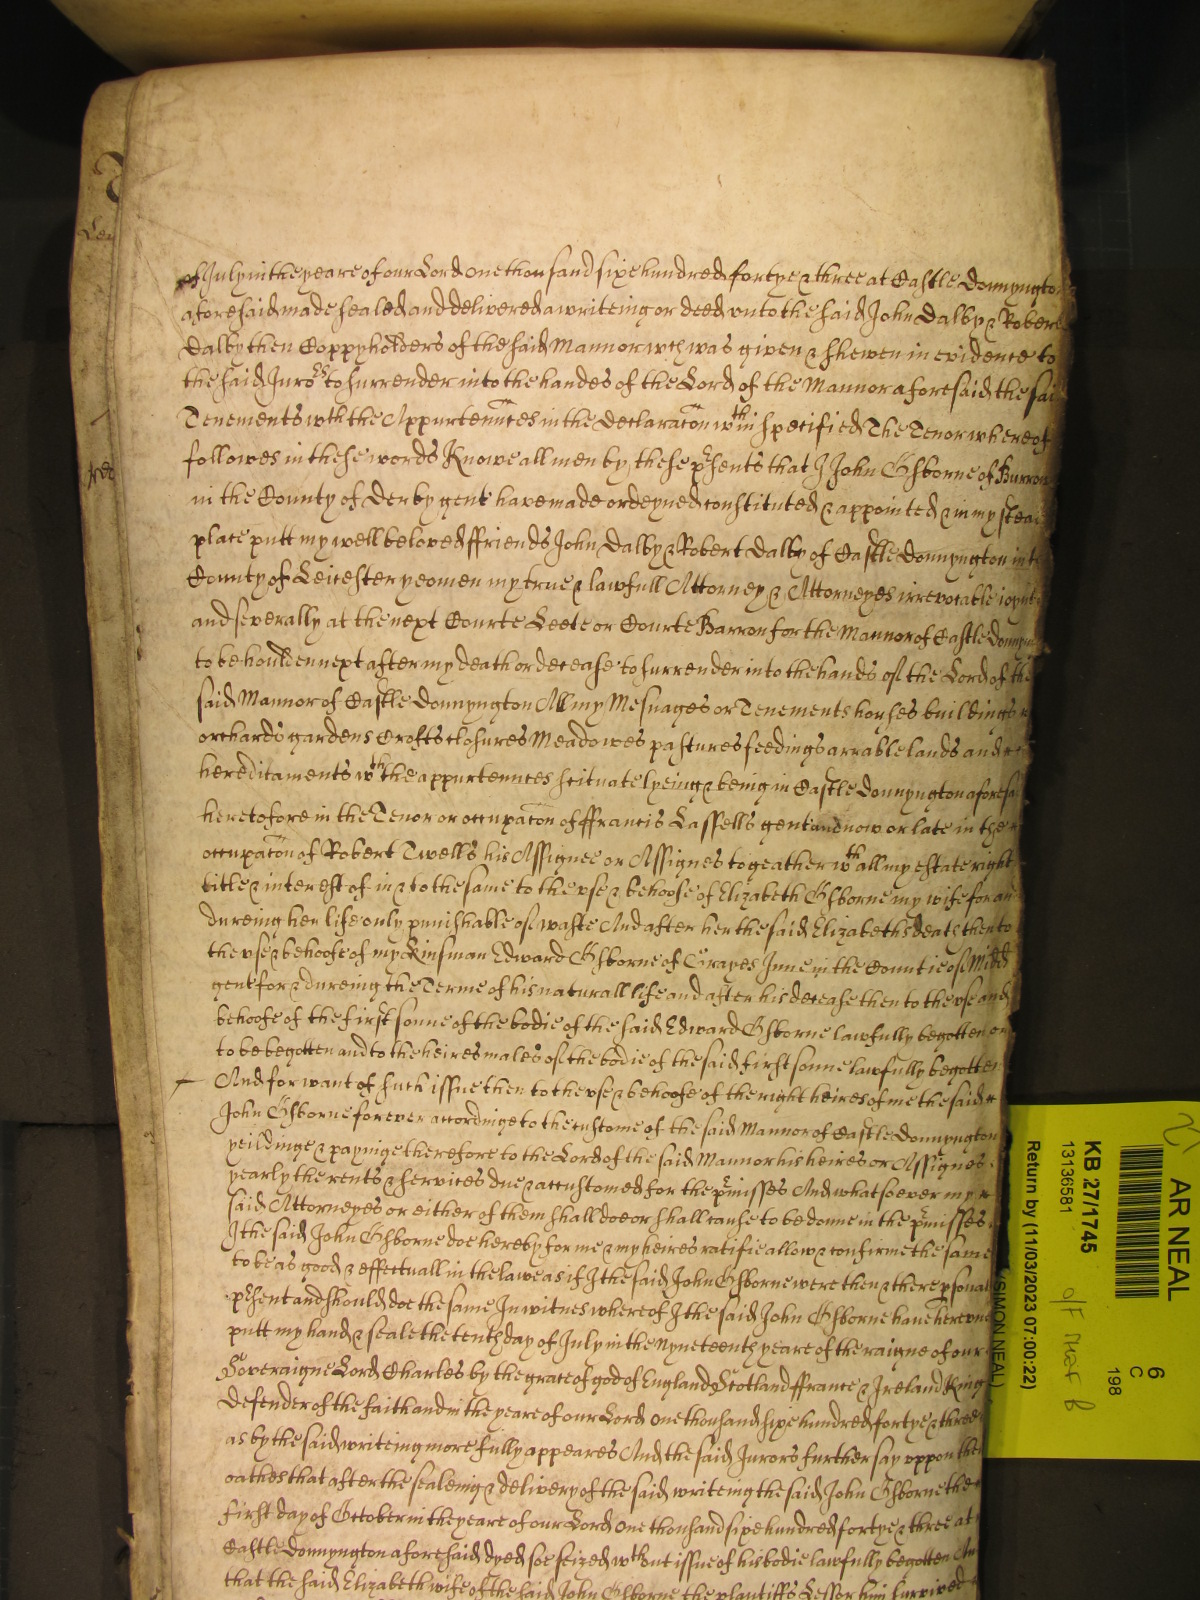 of July in the yeare of our Lord one thousand sixe hundred fortye & three at Castle Donnyngton
aforesaid made sealed and delivered a writeing or deed vnto the said John Dalby & Robert
Dalby then Coppyholders of the said Mannor wch was given & shewen in evidence to
the said Juro.rs to surrender into the handes of the Lord of the Mannor aforesaid the sai
Tenements wth the Appurtennces in the Declaracon wthin specified The Tenor whereof
followes in these words Knowe all men by these psents that I John Osborne of Burron
in the County of Derby gent have made ordeyned constituted & appointed & in my stead
place putt my well beloved ffriends John Dalby & Robert Dalby of Castle Donnyngton in t
County of Leicester yeomen my true & lawfull Attorney & Attorneyes irrevocable ioynt
and severally at the next Courte Leete or Courte Barron for the Mannor of Castle Donnyn
to be houlden next after my death or decease to surrender into the hands of the Lord of the
said Mannor of Castle Donnyngton All my Mesuages or Tenements houses buildings
orchards gardens Crofts closures Meadowes pastures feedings arrable lands and
hereditaments wth the appurtennces scituate lyeing & being in Castle Donnyngton aforesa
heretofore in the Tenor or occupacon of ffrancis Cassells gent and now or late in the
occupacon of Robert Twells his Assignee or Assignes togeather wth all my estate right
title & interest of in & to the same to the vse & behoofe of Elizabeth Osborne my wife for an
dureing her life only punishable of waste And after her the said Elizabeths death then to
the vse & behoofe of my Kinsman Edward Osborne of Grayes Inne in the Countie of Midd
gent for & dureing the Terme of his naturall life and after his decease then to the vse and
behoofe of the first sonne of the bodie of the said Edward Osborne lawfully begotten or
to be begotten and to the heires males of the bodie of the said first sonne lawfully begotten
And for want of such issue then to the vse & behoofe of the right heires of me the said
John Osborne forever accordinge to the custome of the said Mannor of Castle Donnyngton
yeildinge & payinge therefore to the Lord of the said Mannor his heires or Assignes
yearly the rents & services due & accustomed for the pmisses And whatsoever my
said Attorneyes or either of them shall doe or shall cause to be donne in the pmisses
I the said John Osborne doe hereby for me & my heires ratifie allow & confirme the same
to be as good & effectuall in the lawe as if I the said John Osborne were then & there psonal
psent and should doe the same In witnes whereof I the said John Osborne have herevn
putt my hand & seale the tenth day of July in the Nyneteenth yeare of the raigne of our
Soveraigne Lord Charles by the grace of god of England Scotland ffrance & Ireland King
Defender of the faith and in the yeare of our Lord one thousand sixe hundred fortye & three
as by the said writeing more fully appeares And the said Jurors further say vppon their
oathes that after the sealeing & delivery of the said writeing the said John Osborne the
first day of October in the yeare of our Lord one thousand sixe hundred fortye & three at
Castle Donnyngton aforesaid dyed soe seized wthout issue of his bodie lawfully begotten And
that the said Elizabeth wife of the said John Osborne the plaintiffs Lessor him survived
AR NEAL
6
C
198
KB 27/1745
13136581
Return by (11/03/2023 07:00:22)
(SIMON NEAL)